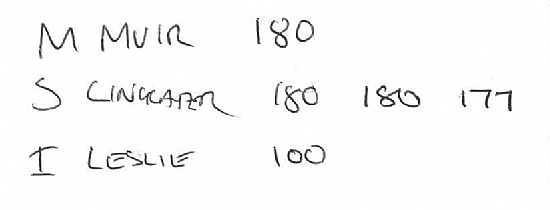 M MUIR 180
S LINKLATER 180 180 177
I LESLIE 100